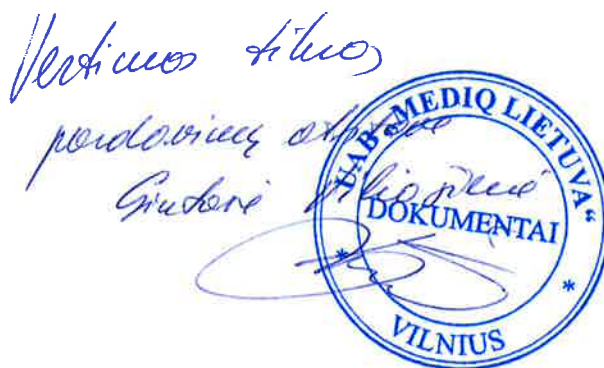 Vertimas tikras
pardavimų atstovė
Gintarė
UAB „MEDIQ LIETUVA“
DOKUMENTAI
* VILNIUS *